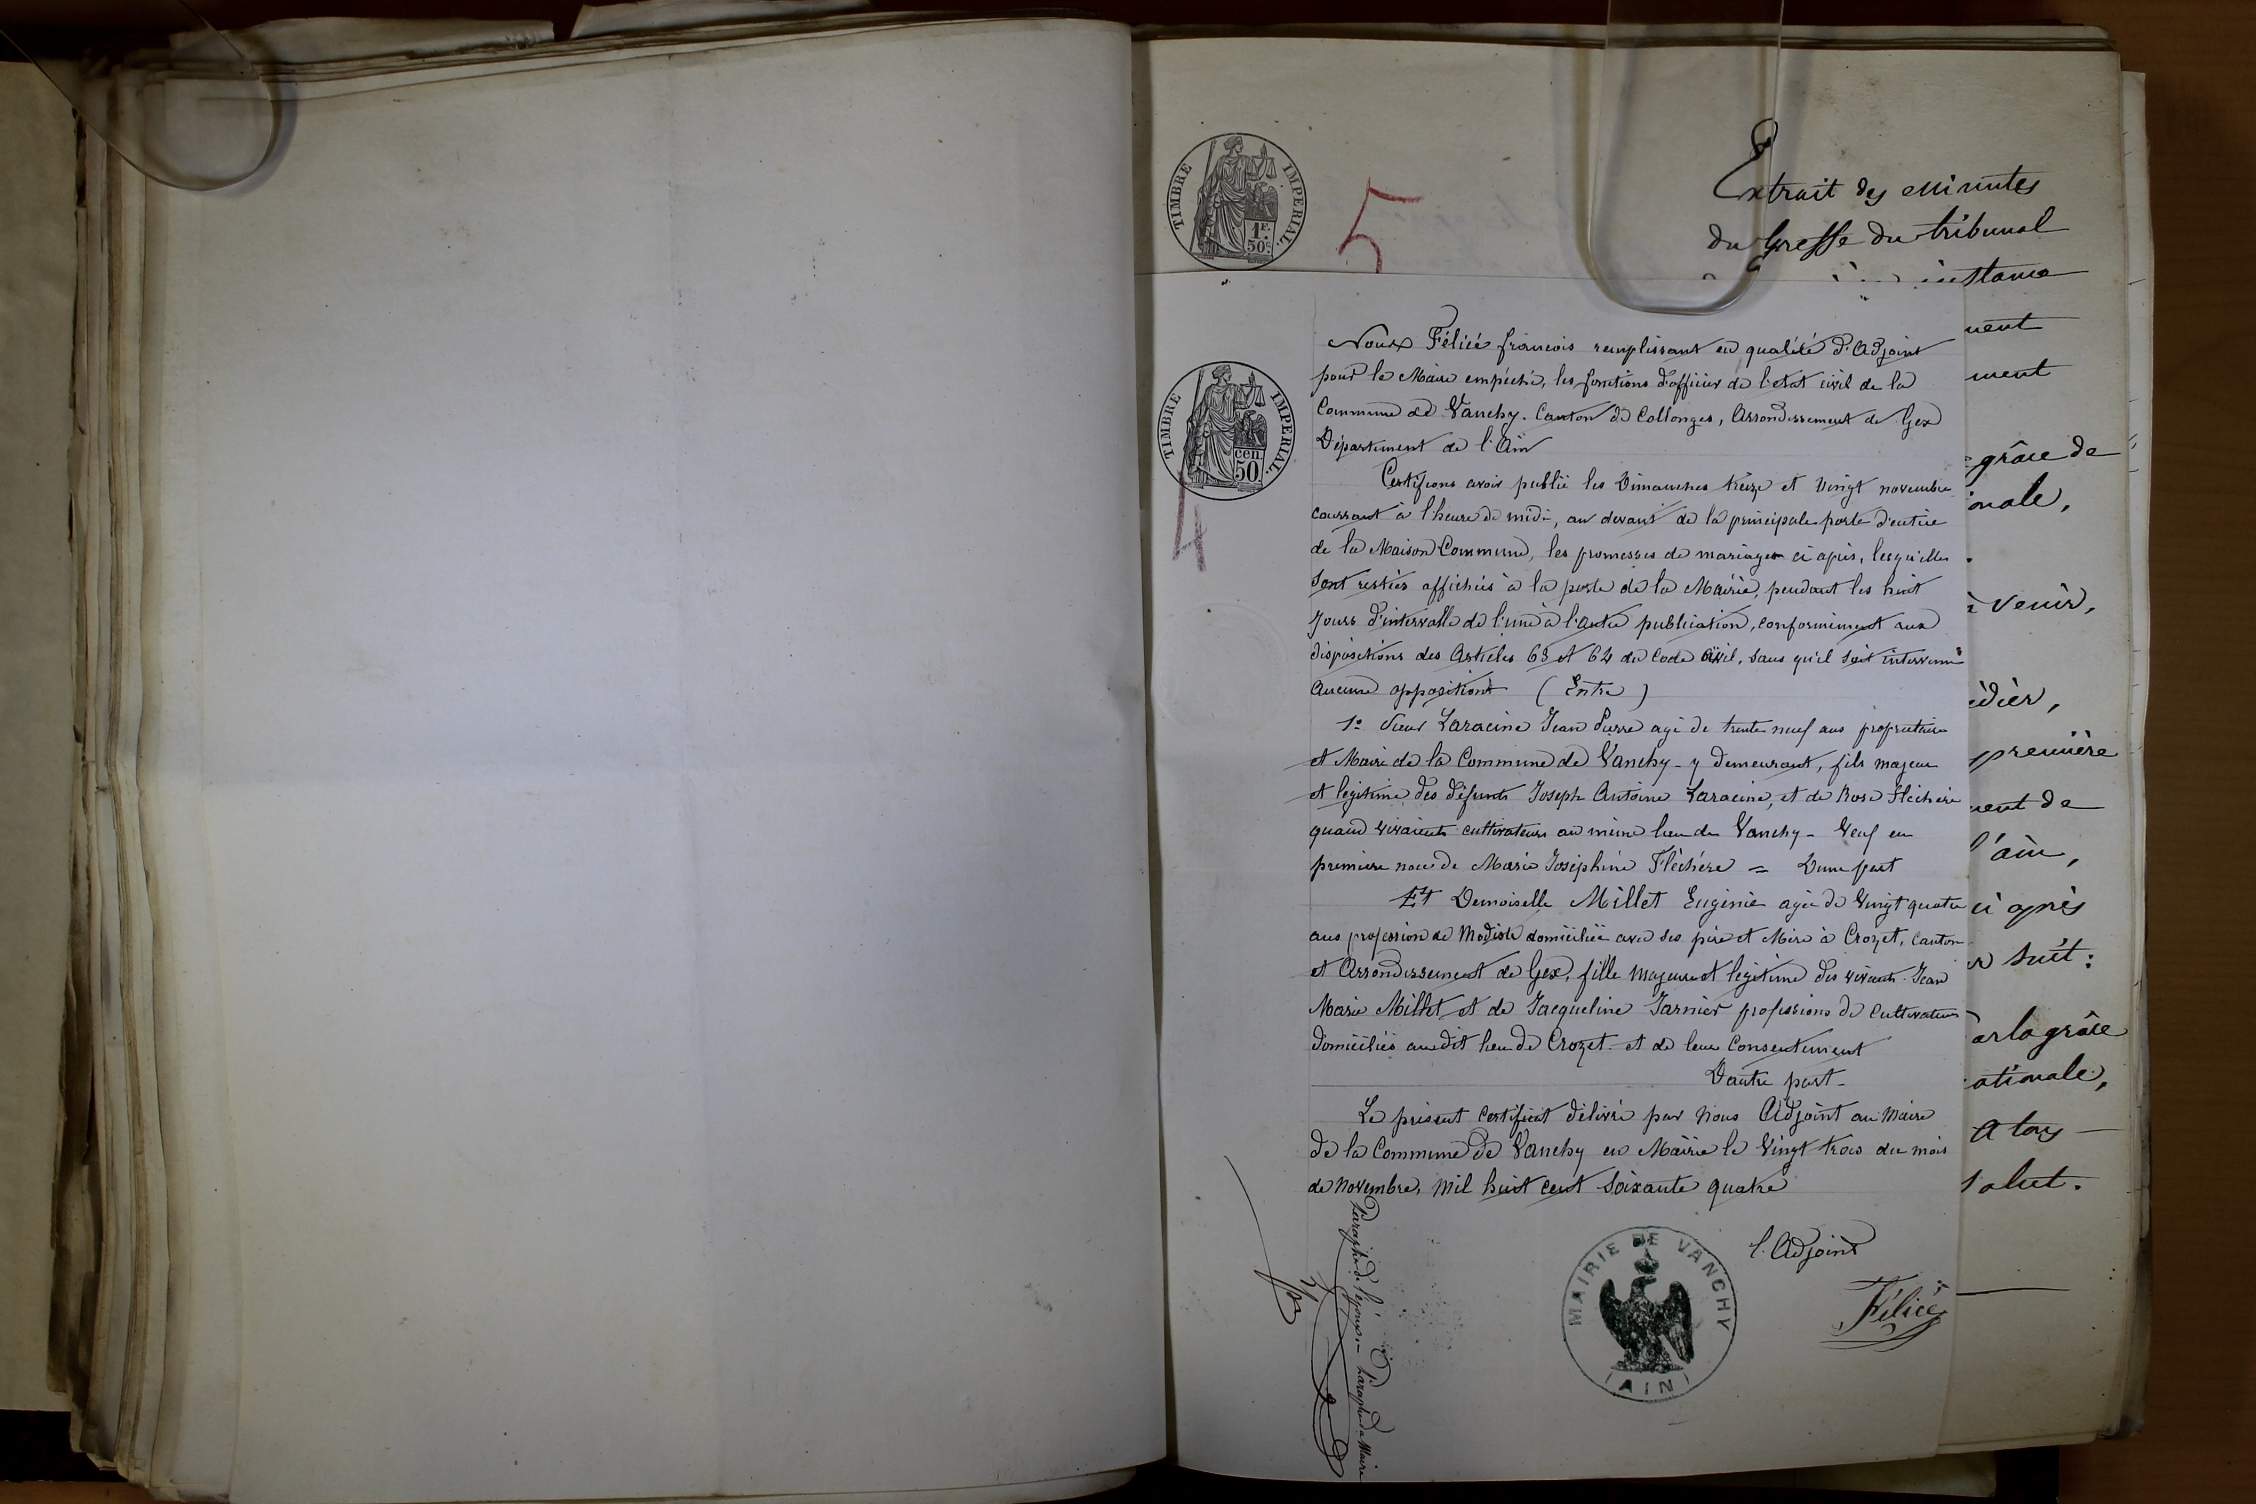 TIMBRE IMPERIAL.
1F. 50c.
5
Extrait des Minutes
du Greffe du tribunal
instance
TIMBRE IMPERIAL.
cen. 50.
4
Nous Félicé françois remplissant en qualité d'Adjoint
pour le Maire empéché, les fonctions d'officier de l'etat civil de la
Commune de Vanchy. Canton de Collonges, Arrondissement de Gex
Département de l'Ain
Certifions avoir publié les Dimanches treize et Vingt novembre
courrant à l'heure de midi, au devant de la principale porte d'entrée
de la Maison Commune, les promesses de mariages ci après, lesqu'elles
sont restées affichés à la porte de la Mairie, pendant les huit
jours d'intervalle de l'une à l'autre publication, conformément aux
dispositions des Articles 63 et 64 du Code Civil, sans qu'il soit intervenu
Aucune opposition (Entre)
1° Sieur Laracine Jean Pierre agé de trente neuf ans propriétaire
et Maire de la Commune de Vanchy - y demeurant, fils majeur
et légitime des défunts Joseph Antoine Laracine, et de Rose Fléchère
quand vivaients cultivateurs au même lieu de Vanchy - Veuf en
premiere noce de Marie Joséphine Fléchére = D'une part
Et Demoiselle Millet Eugénie agée de Vingt quatre
ans profession de Modiste domiciliée avec ses pére et Mère à Crozet, Canton
et Arrondissement de Gex, fille majeure et légitime des vivants Jean
Marie Millet et de Jacqueline Jarnier professions de Cultivateurs
domiciliés au dit lieu de Crozet - et de leur Consentement
D'autre part -
Le présent Certificat délivré par Nous Adjoint au Maire
de la Commune de Vanchy en Mairie le Vingt trois du mois
de Novembre, Mil huit cent Soixante quatre
l'Adjoint
Félicé
MAIRIE DE VANCHY
(AIN)
Paraphe de l'époux
Paraphe du Maire
nent
ment
grâce de
onale,
venir,
première
nent de
l'ain,
ci après
suit:
par la grâce
ationale,
A tous
salut.